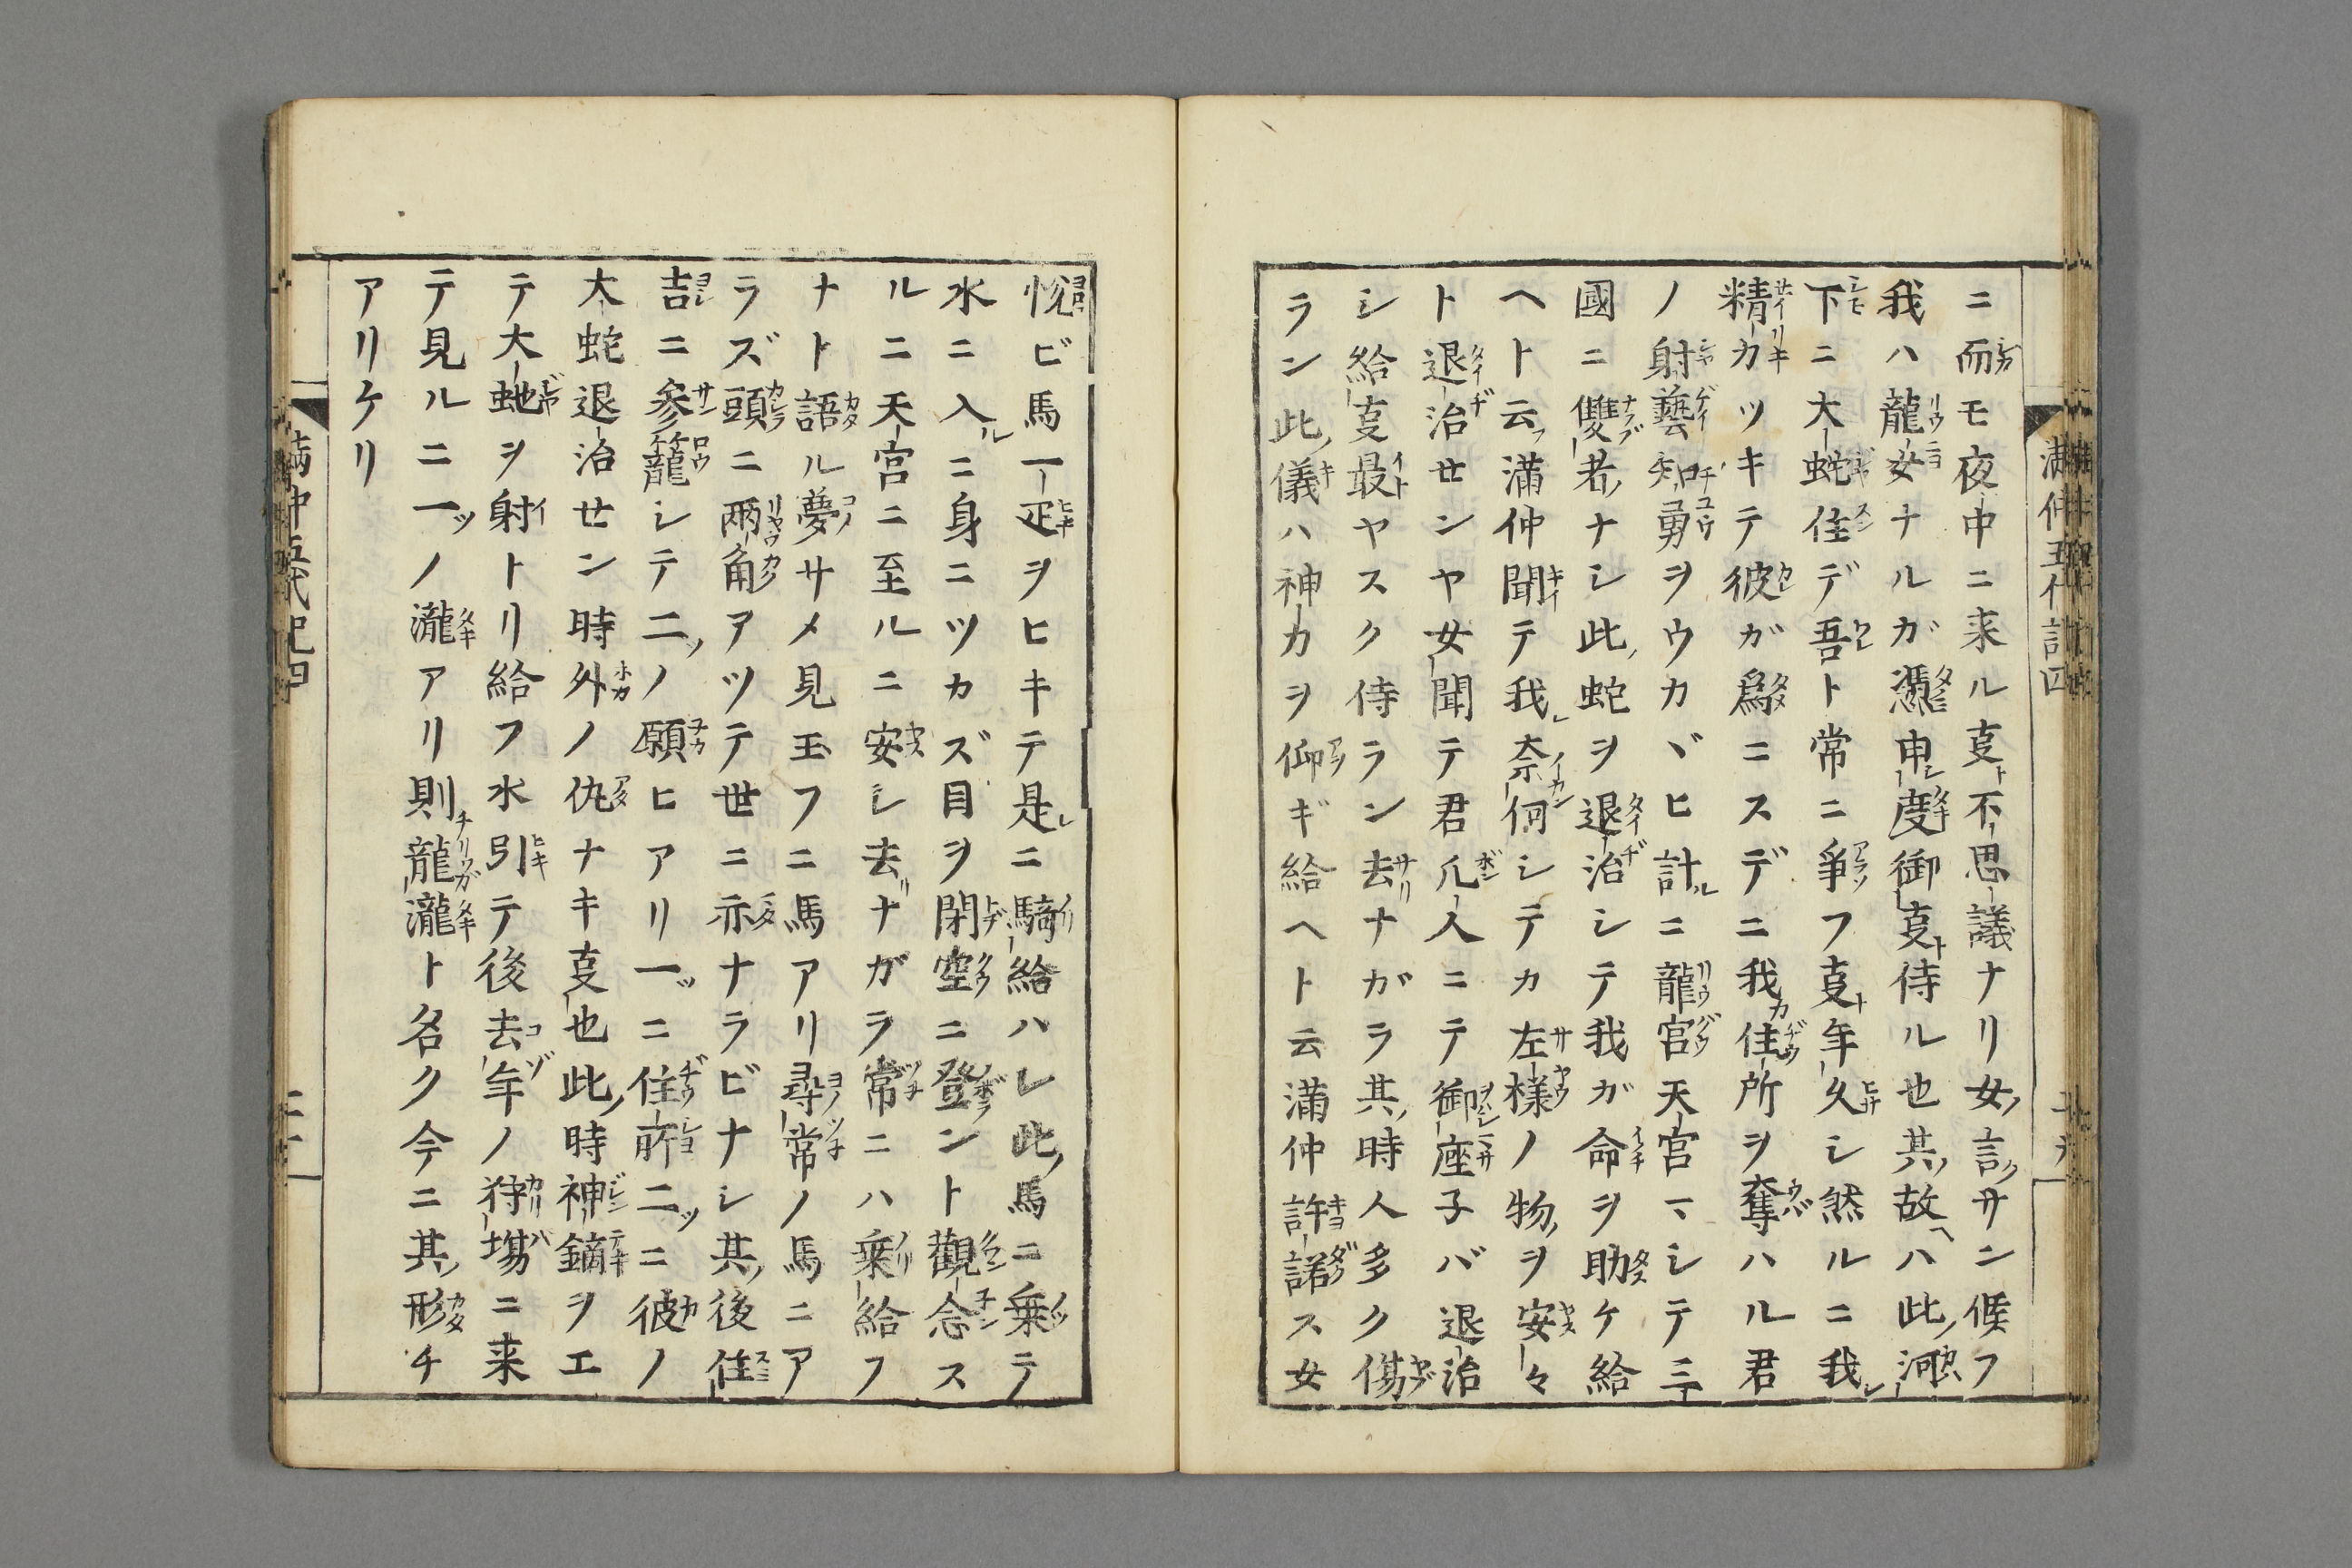 ニ而モ夜中ニ来ル㕝不思議ナリ女ノ言サン候フ
我ハ龍女ナルガ憑申シ度キ御㕝侍ル也其ノ故ヘハ此ノ河
下ニ大蛇住デ吾ト常ニ爭フ㕝年久シ然ルニ我レ
精力ツキテ彼ガ爲ニスデニ我カ住所ヲ奪ハル君
ノ射藝知勇ヲウカヾヒ計ルニ龍宮天宮ニシテ三
國ニ雙ブ者ノナシ此ノ蛇ヲ退治シテ我ガ命ヲ助ケ給
ヘト云フ滿仲聞テ我レ奈何シテカ左樣ノ物ヲ安々
ト退治センヤ女聞テ君凡人ニテ御座子バ退治
シ給㕝最ヤスク侍ラン去ナガラ其ノ時人多ク傷
ラン此ノ儀ハ神力ヲ仰ギ給ヘト云滿仲許諾ス女
悅ビ馬一疋ヲヒキテ是レニ騎給ハレ此ノ馬ニ乗テ
水ニ入ルニ身ニツカズ目ヲ閉空ニ登ント觀念ス
ルニ天宮ニ至ルニ安シ去リナガラ常ニハ乗給フ
ナト語ル夢サメ見玉フニ馬アリ尋常ノ馬ニア
ラズ頭ニ兩角アツテ世ニ示ナラビナシ其ノ後住
吉ニ參籠シテ二ノ願ヒアリ一ツニ住所二ツニ彼ノ
大蛇退治セン時外ノ仇ナキ㕝也此ノ時神鏑ヲエ
テ大虵ヲ射トリ給フ水引テ後去年ノ狩場ニ来
テ見ルニ一ツノ瀧アリ則龍瀧ト名ク今ニ其ノ形チ
アリケリ
滿仲五代記四